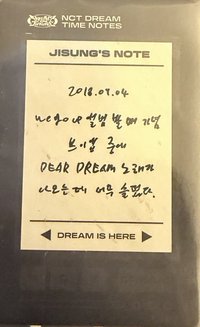 NCT DREAM
TIME NOTES
JISUNG'S NOTE
2018.09.04
we go up 앨범 발매 기념
브이앱 중에
DEAR DREAM 노래가
나오는데 너무 슬펐다.
◀ DREAM IS HERE ▶